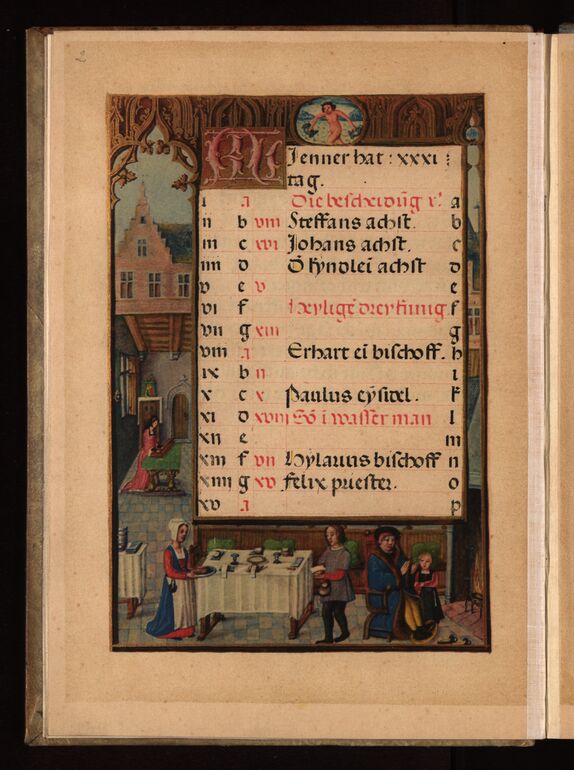 2
Jenner hat : xxxi :
tag.
i a Die bescheidūg r̓. a
ii b viii Steffans achst. b
iii c xvi Johans achst. c
iiii d Ō kyndleī achst d
v e v e
vi f heylige drey kūnig. f
vii g xiii g
viii a Erhart eī bischoff. h
ix b ii i
x c x Paulus eysidel. k
xi d xviii Sō ī wasser man l
xii e m
xiii f vii Hylarius bischoff n
xiiii g xv Felix priester. o
xv a p